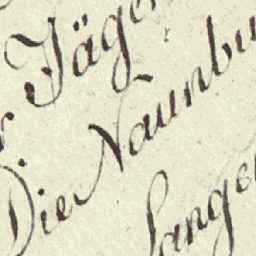 r Jäger
Die Naunbu
Lange